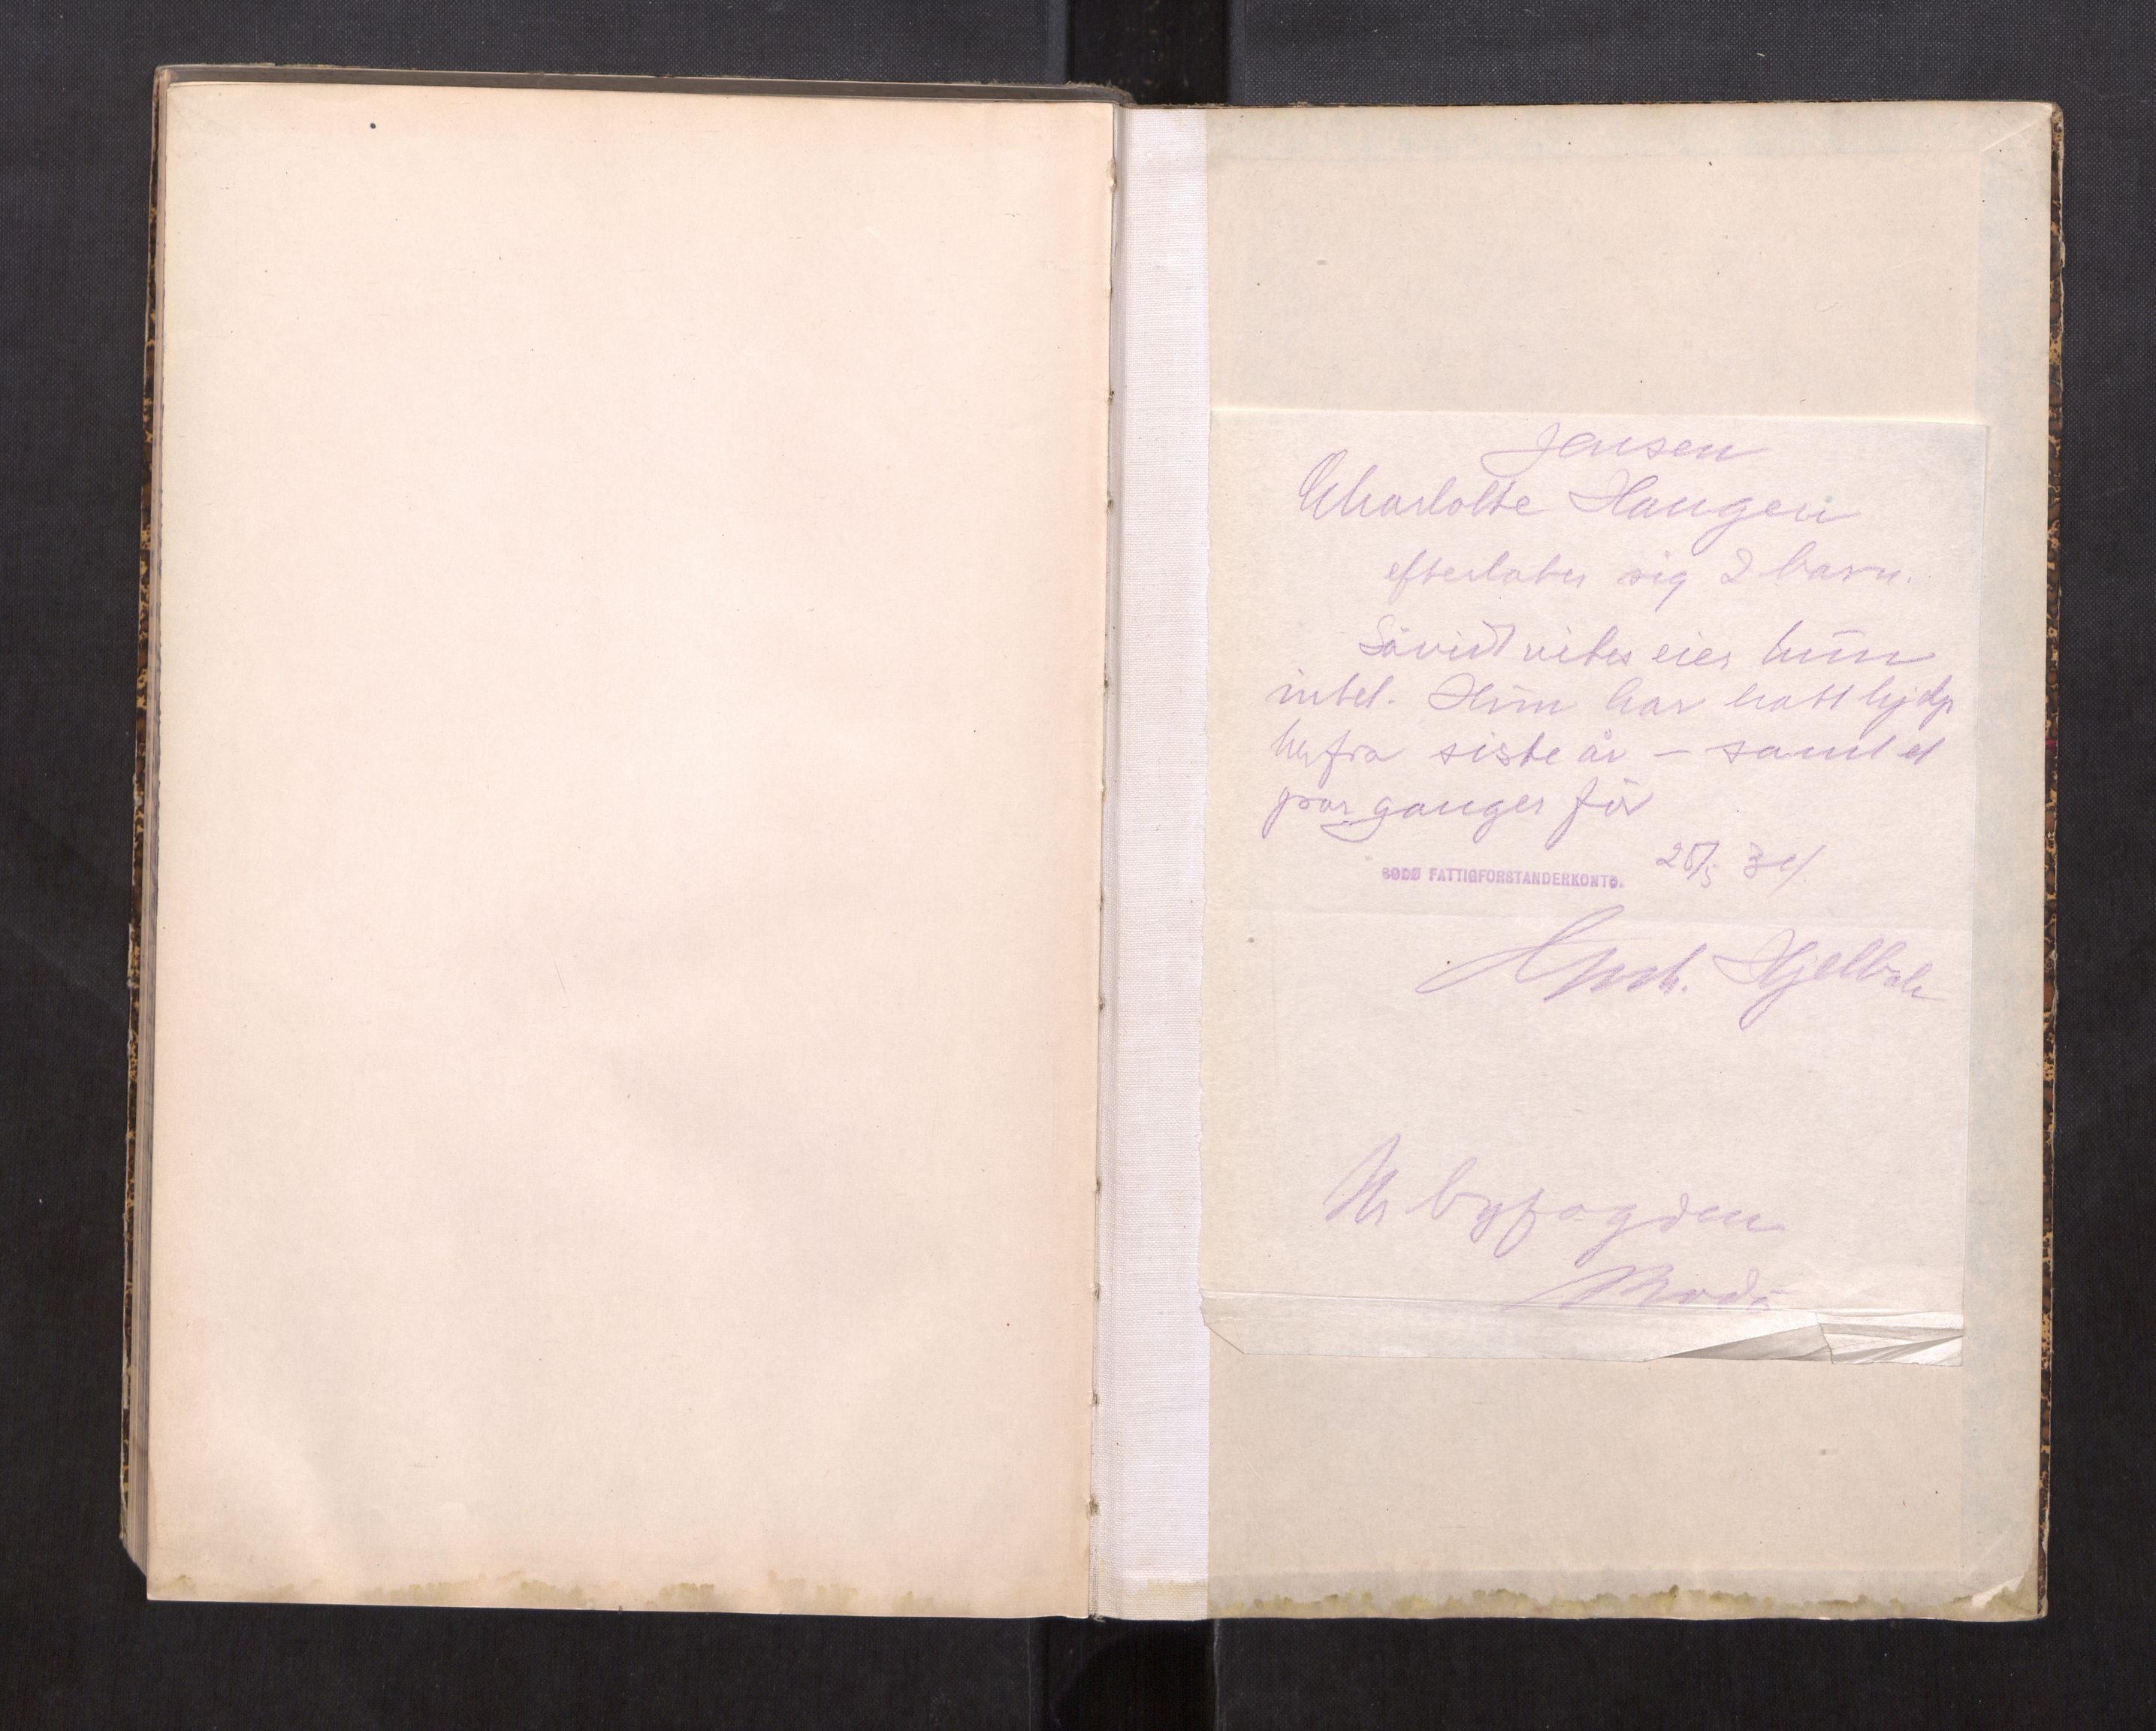 Jensen
Charlotte Haugen
efterlater sig 2 barn.
Såvidt vites eier hun
intet. Hun har hatt hjelp
herfra siste år - samt et
par ganger før
BODØ FATTIGFORSTANDERKONTO. 34
Hr byfogden
Bodø